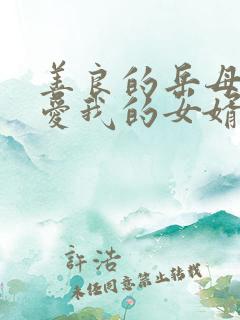 善良的岳母
愛我的女婿
許浩
未经同意禁止转载